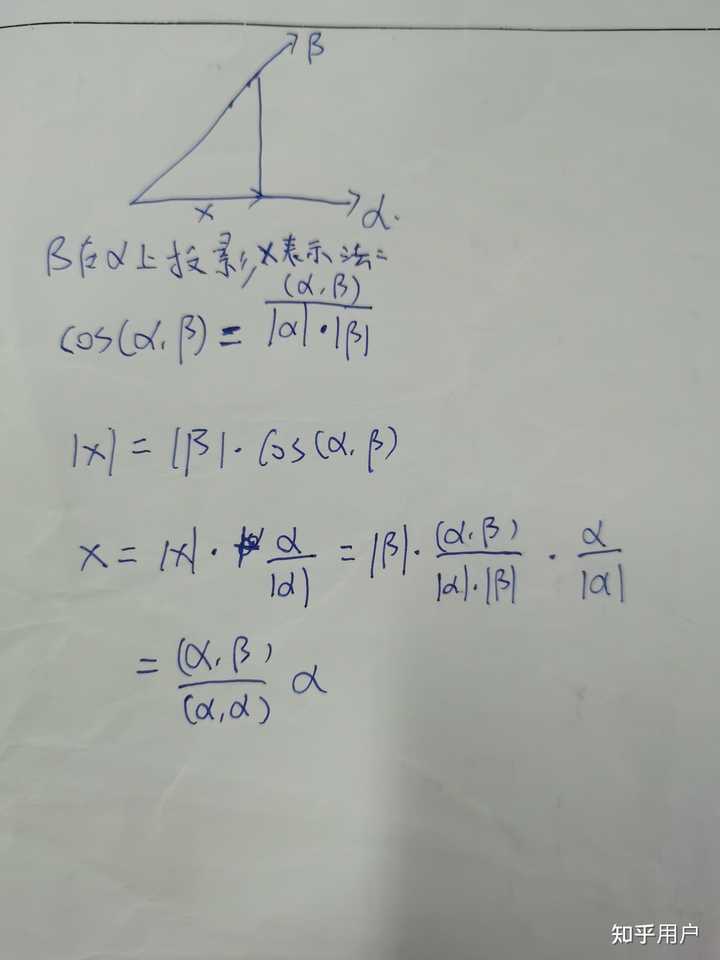 β
x
α.
β在α上投影,x表示法:
cos(α,β) = (α,β) / |α|·|β|
|x| = |β|·cos(α,β)
x = |x|· α/|α| = |β|· (α,β)/|α|·|β| · α/|α|
= (α,β)/(α,α) α
知乎用户